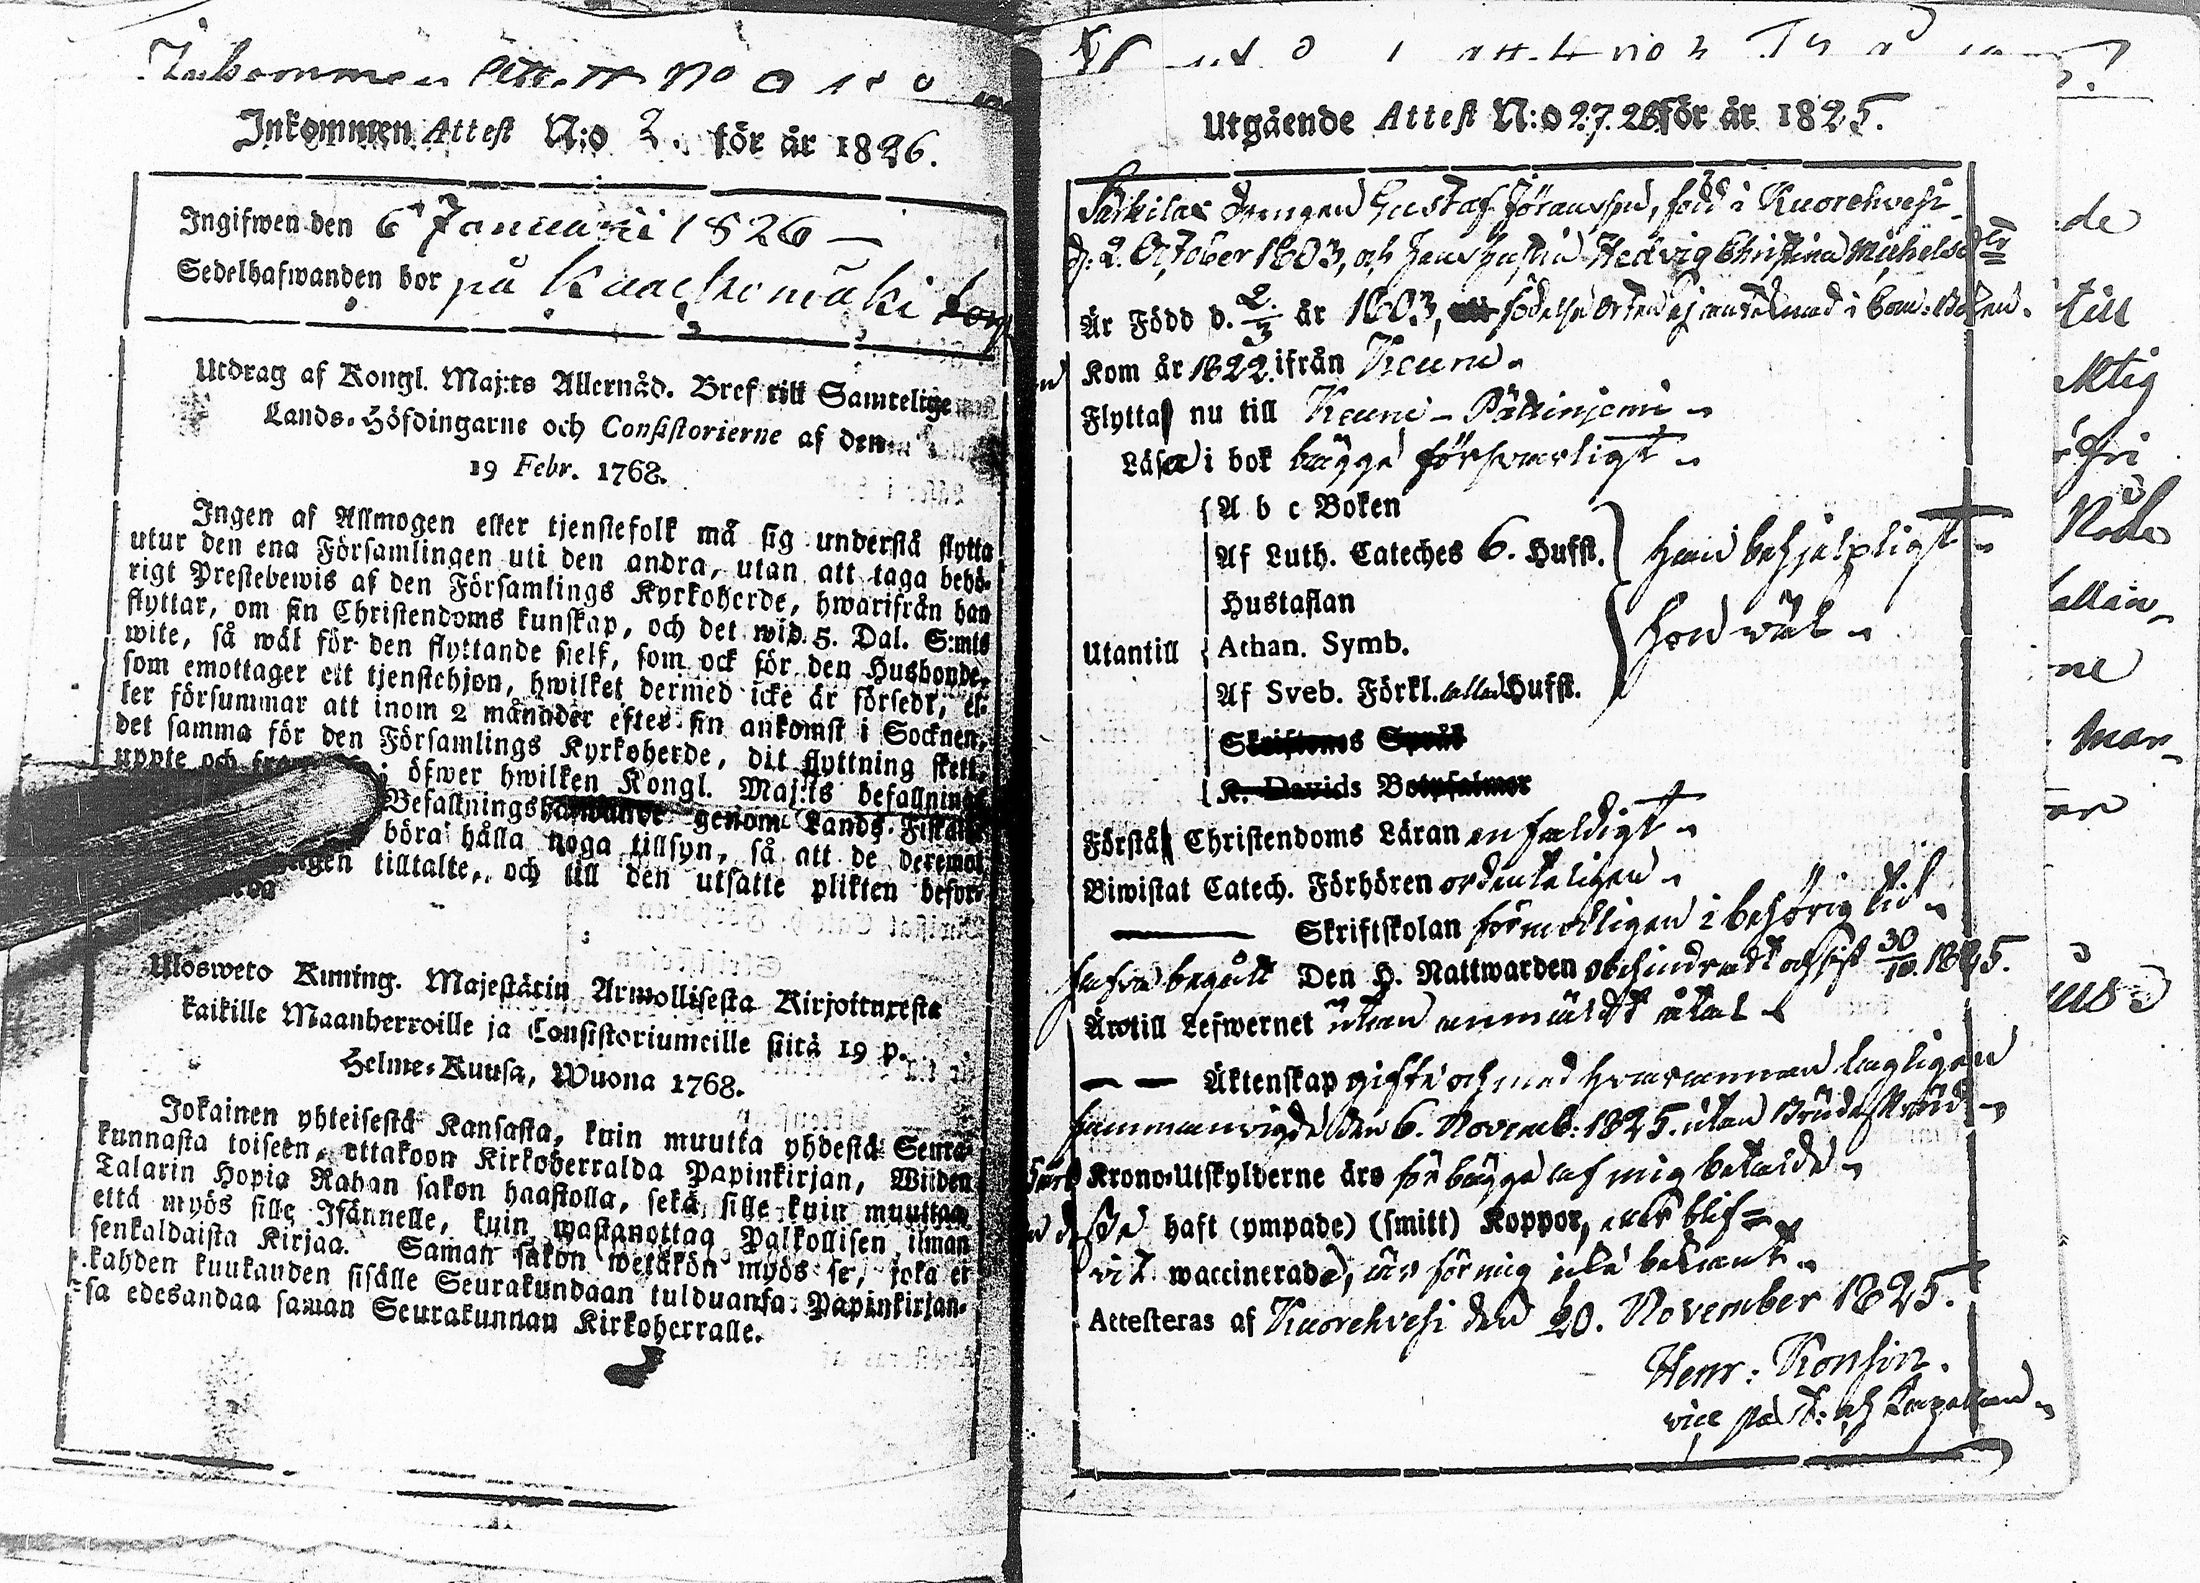 Inkommen Attest N:o 2. för år 1826.
Ingifwen den 6 Januarii 1826 —
Sedelhafwanden bor på Kaachomäki torp
Utdrag af Kongl. Maj:ts Allernåd. Bref till Samtelige
Lands-Höfdingarne och Consistorierne af den
19 Febr. 1768.
Ingen af Allmogen eller tjenstefolk må sig understå flytta
utur den ena Församlingen uti den andra, utan att taga behö-
rigt Prestebewis af den Församlings Kyrkoherde, hwarifrån han
flyttar, om sin Christendoms kunskap, och det wid 5. Dal. S:mts
wite, så wäl för den flyttande sielf, som ock för den Husbonde,
som emottager ett tjenstehjon, hwilket dermed icke är försedt, el-
ler försummar att inom 2 månader efter sin ankomst i Socknen,
det samma för den Församlings Kyrkoherde, dit flyttning skett,
uppte och öfwer hwilken Kongl. Maj:ts befallning
Befallnings genom Lands-Fiskaler
böra hålla noga tillsyn, så att de deremot
tilltalte, och till den utsatte plikten befor-
Ulosweto Kuning. Majestätin Armollisesta Kirjoituxesta
kaikille Maanherroille ja Consistoriumeille siitä 19 p.
Helme-Kuusa, Wuona 1768.
Jokainen yhteisestä Kansasta, kuin muutta yhdestä Seura-
kunnasta toiseen, ottakoon Kirkoherralda Papinkirjan, Wiiden
Talarin Hopia Rahan sakon haastolla, sekä sille kuin muuttaa,
että myös sille Isännelle, kuin wastanottaa Palkollisen ilman
senkaldaista Kirjaa. Saman sakon wetäkön myös se, joka ei
kahden kuukauden sisälle Seurakundaan tulduansa Papinkirjan-
sa edesandaa saman Seurakunnan Kirkoherralle.
Utgående Attest N:o 27. 28 för år 1825.
Drengen Gustaf Jöransson, född i Kuorehvesi
d. 2. October 1803, och hans hustru Hedvig Christina Michelsdr
Är Född d. 2/3 år 1803, födelse orten ej antecknad i Com: Boken.
Kom år 1822. ifrån Keuru.
Flytta nu till Keuru - Pihlinjemi
Läsa i bok bägge försvarligt
Utantill
A b c Boken
Af Luth. Cateches 6. Hufst.
Hustaflan
Athan. Symb.
Af Sveb. Förkl. alla Hufst.
han behjelpligt
hon väl
Skriftenes Språk
K. Davids Botpsalmer
Förstå Christendoms Läran enfaldigt
Biwistat Catech. Förhören ordenteligen
Skriftskolan förmodligen i behörig tid
hafva begått Den H. Nattwarden obehindradt och sist 30/10. 1825.
Äro till Lefwernet utan anmäldt åtal
— — Äktenskap gifte och med hvarannan lagligen
sammanvigde den 6. Novemb: 1825. utan Brudaskrud
Krono-Utskylderne äro för bägge af mig betalde
haft (ympade) (smitt) Koppor, eller blif=
vit waccinerade, är för mig icke bekant
Attesteras af Kuorehvesi den 20. November 1825.
Henr: Konsin.
vice past: och Capellan
de
till
ktig
Nåde
allan-
ne
man-